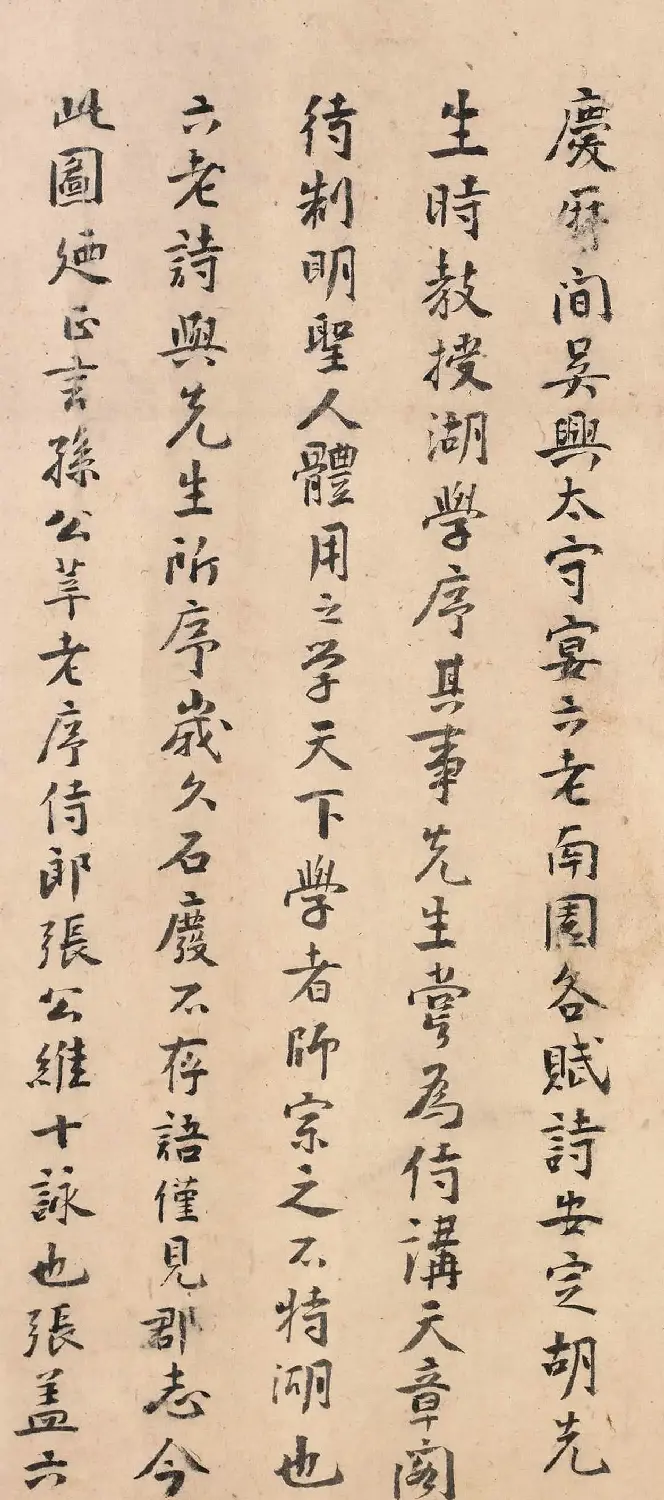 慶厤間吳興太守宴六老南園各賦詩安定胡先
生時教授湖學序其事先生嘗爲侍講天章閣
待制明聖人體用之学天下學者師宗之不特湖也
六老詩與先生所序歲久石廢不存語僅見郡志今
此圖廼正言孫公莘老序侍郎張公維十詠也張盖六